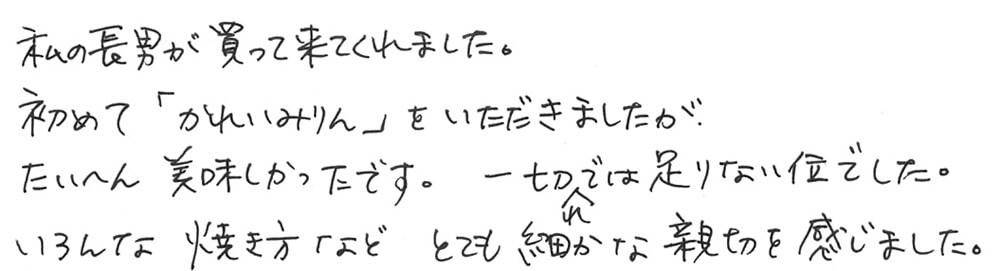 私の長男が買って来てくれました。
初めて「かれいみりん」をいただきましたが、
たいへん美味しかったです。一切れでは足りない位でした。
いろんな焼き方などとても細かな親切を感じました。